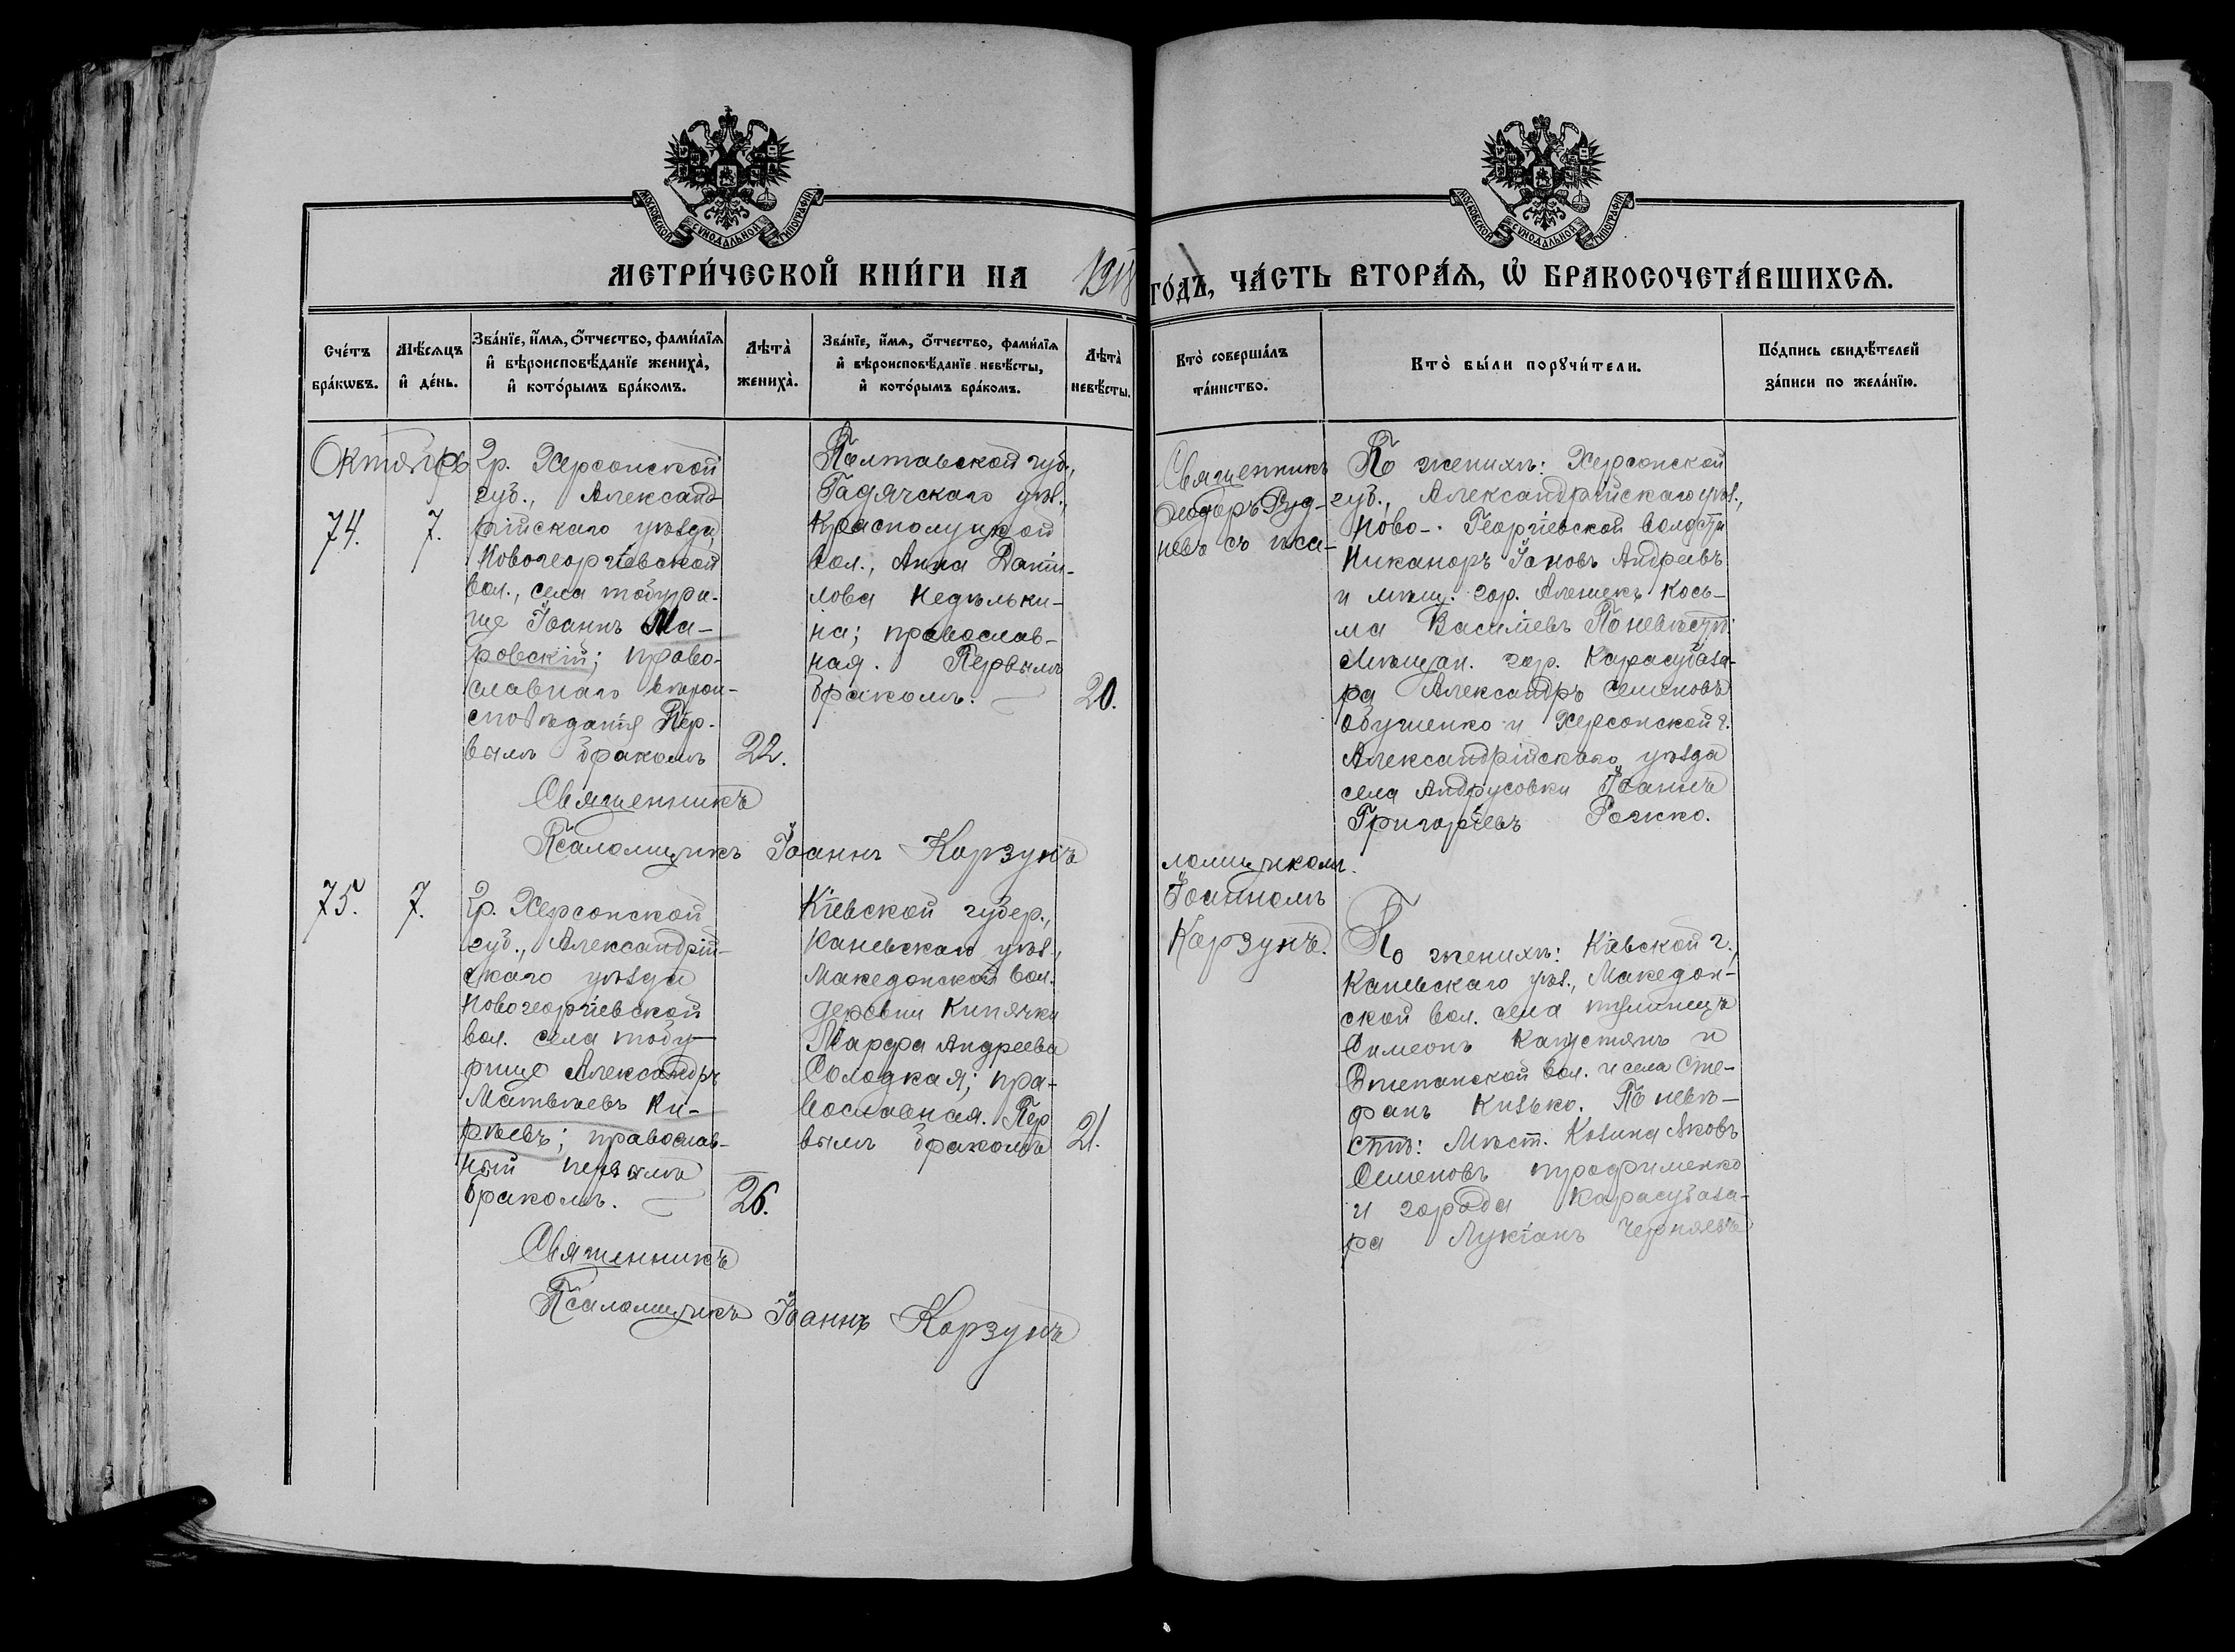 МОСКОВСКОЙ СѴНОДАЛЬНОЙ ТИПОГРАФІИ
МОСКОВСКОЙ СѴНОДАЛЬНОЙ ТИПОГРАФІИ
МЕТРИ́ЧЕСКОЙ КНИ́ГИ НА 1918 ГО́ДЪ, ЧА́СТЬ ВТОРА́Ѧ, Ѡ҆ БРАКОСОЧЕТА́ВШИХСѦ.
Сче́тъ
бра́кѡвъ.
Мѣ́сѧцъ
и҆ де́нь.
Зва́нїе, и҆́мѧ, ѻ҆́тчество, фами́лїѧ
и҆ вѣроисповѣ́данїе жениха̀,
и҆ кото́рымъ бра́комъ.
Лѣта̀
жениха̀.
Зва́нїе, и҆́мѧ, ѻ҆́тчество, фами́лїѧ
и҆ вѣроисповѣ́данїе невѣ́сты,
и҆ кото́рымъ бра́комъ.
Лѣта̀
невѣ́сты.
Кто̀ соверша́лъ
та́инство.
Кто̀ бы́ли порꙋчи́тели.
По́дпись свидѣ́телей
за́писи по жела́нїю.
Октябрь
74.
7.
Гр. Херсонской
губ., Александ-
рійскаго уѣзда,
Новогеоргіевской
вол., села Табури-
ще Іоаннъ Ма-
ровскій; право-
славнаго вѣрои-
сповѣданія Пер-
вымъ бракомъ
22.
Полтавской губ.,
Гадячскаго уѣз.,
Краснолуцкой
вол., Анна Дани-
лова Недѣльки-
на; православ-
ная. Первымъ
бракомъ.
20.
Священникъ
Ѳеодоръ Руд-
невъ съ пса-
ломщикомъ
Іоанномъ
Корзунъ.
По женихѣ: Херсонской
губ., Александрійскаго уѣз.,
Ново-Георгіевской волости
Никаноръ Іаковъ Андреевъ
и мѣщ. гор. Алешекъ Кось-
ма Василіевъ По невѣстѣ:
Мѣщан. гор. Карасубаза-
ра Александръ Семеновъ
Обушенко и Херсонской г.
Александрійскаго уѣзда
села Андрусовки Іоаннъ
Григоріевъ Рожко.
Священникъ
Псаломщикъ Іоаннъ Корзунъ
75.
7.
Гр. Херсонской
губ., Александрій-
скаго уѣзда
Новогеоргіевской
вол. села Табу-
рище Александръ
Матвѣевъ Ки-
рѣевъ; православ-
ный первымъ
бракомъ.
26.
Кіевской губер.,
Каневскаго уѣз.,
Македонской вол.
деревни Кипячки
Марфа Андреева
Солодкая; пра-
вославная. Пер
вымъ бракомъ
21.
По женихѣ: Кіевской г.,
Каневскаго уѣз., Македон-
ской вол. села Тулинецъ
Симеонъ Капустянъ и
Степанской вол. и села Сте-
фанъ Кизько. По невѣ-
стѣ: Мѣст. Козина Яковъ
Семеновъ Трофименко
и города Карасубаза-
ра Лукіанъ Черняевъ
Священникъ
Псаломщикъ Іоаннъ Корзунъ